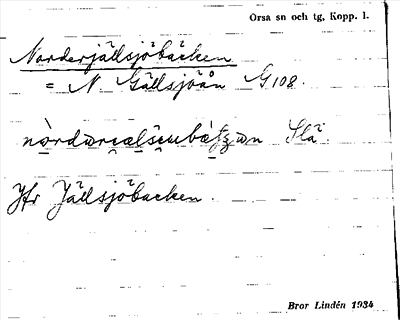 Orsa sn och tg, Kopp. l.
Norderjällsjöbäcken
= N Gällsjöån G108.
Slä
Jfr Jällsjöbäcken.
Bror Lindén 1934